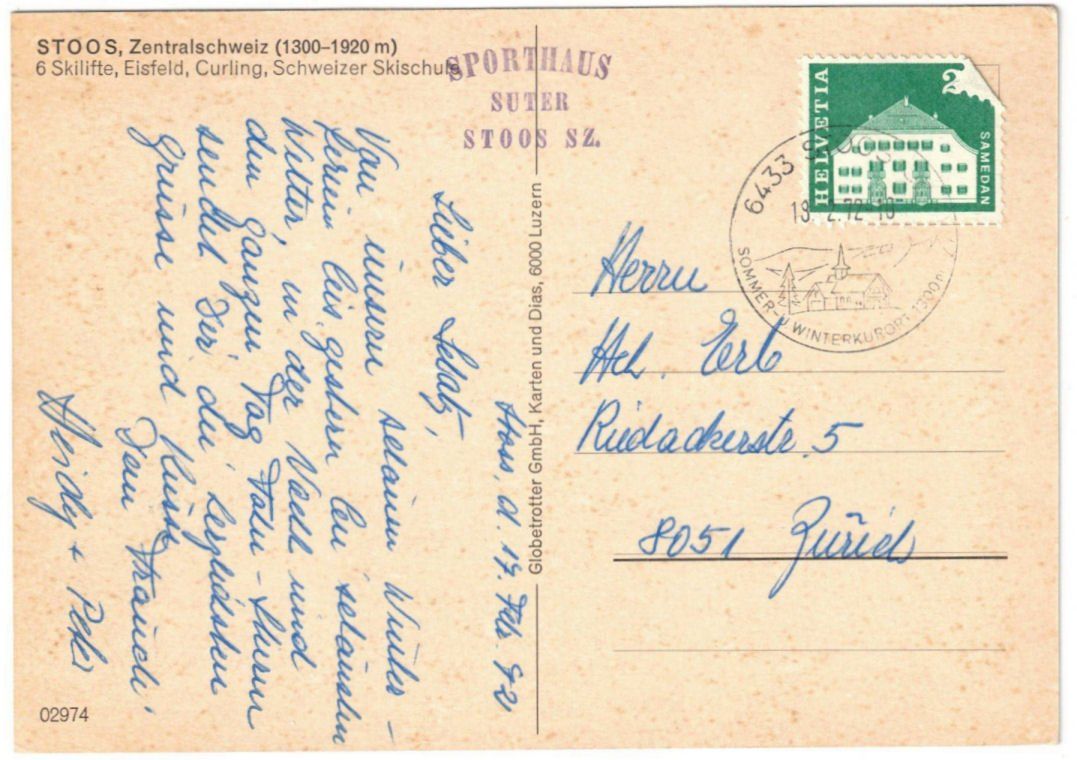 STOOS, Zentralschweiz (1300–1920 m)
6 Skilifte, Eisfeld, Curling, Schweizer Skischule
SPORTHAUS
SUTER
STOOS SZ.
Stoos, d. 17. Feb. 72
Lieber Schatz,
Von unseren schönen Winter-
ferien bis gestern bei schönstem
Wetter, in der Nacht und
den ganzen Tag Föhn-Sturm
sendet Dir die herzlichsten
Grüsse und Küsse
Dein Traudi
Heidy + Peter
02974
Globetrotter GmbH, Karten und Dias, 6000 Luzern
HELVETIA
2
SAMEDAN
6433 STOOS
18.2.72-10
SOMMER-U WINTERKURORT 1300m
Herrn
Hch. Erb
Riedackerstr. 5
8051 Zürich